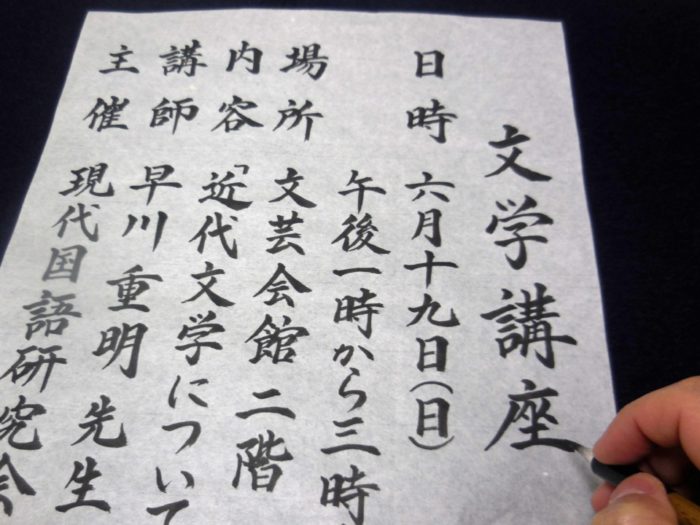 文学講座
日時 六月十九日(日)
午後一時から三時
場所 文芸会館 二階
内容 「近代文学について
講師 早川 重明 先生
主催 現代国語研究会